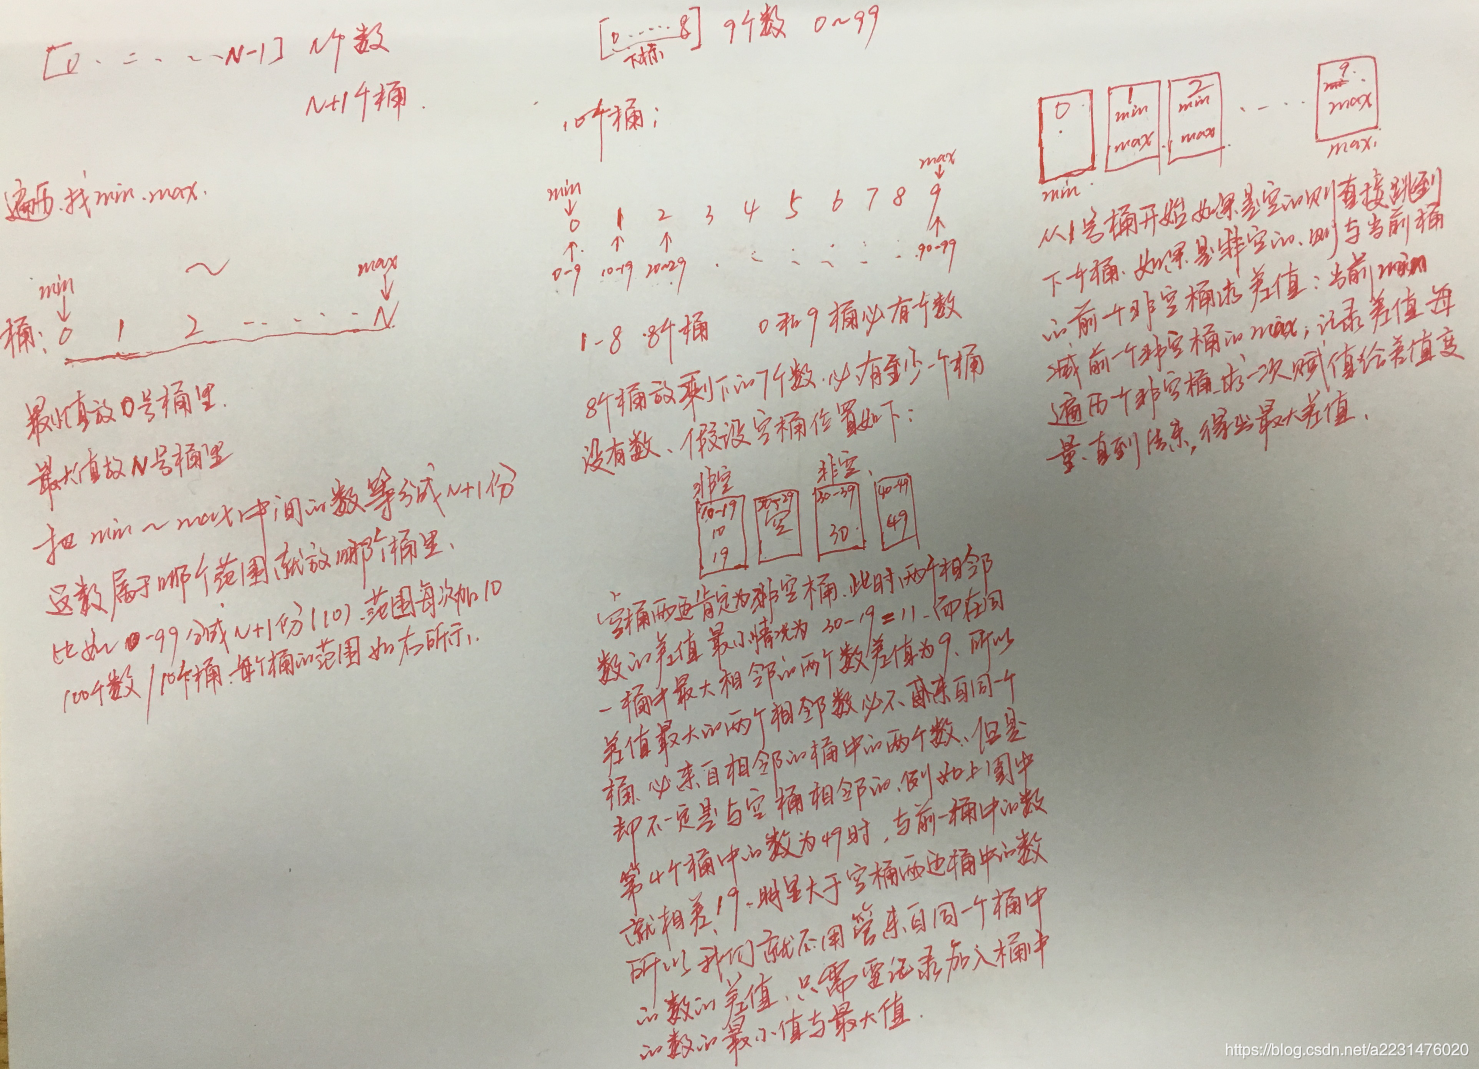 [0 . = . . . N-1] N个数
N+1个桶.
遍历.找min.max.
min ~ max
桶: 0 1 2 - - - - - N
最小值放0号桶里.
最大值放N号桶里
把 min ~ max 中间的数等分成N+1份
这数属于哪个范围就放哪个桶里.
比如 0-99 分成 N+1份(10).范围每次加10
100个数/10个桶.每个桶的范围如右所示.
[0 ..... 8] 9个数 0~99
下标
10个桶;
min max
0 1 2 3 4 5 6 7 8 9
0-9 10-19 20-29 90-99
1-8 8个桶 0和9桶必有个数
8个桶放剩下的7个数.必有至少一个桶
没有数、假设空桶位置如下:
非空 非空
10-19 20-29 30-39 40-49
10 空 30 49
19
空桶两边肯定为非空桶.此时两个相邻
数的差值最小情况为 30-19=11.而在同
一桶中最大相邻的两个数差值为9.所以
差值最大的两个相邻数必不来自同一个
桶.必来自相邻的桶中的两个数、但是
却不一定是与空桶相邻的.例如上图中
第4个桶中的数为49时,与前一桶中的数
就相差19.明显大于空桶两边桶中的数
所以我们就不用管来自同一个桶中
的数的差值.只需要记录加入桶中
的数的最小值与最大值.
0 1 2 . - . . . 9
min min min
max max max
min max.
从1号桶开始如果是空的则直接跳到
下个桶.如果是非空的.则与当前桶
的前一个非空桶求差值:当前min
减前一个非空桶的max;记录差值每
遍历一个非空桶.求一次赋值给差值变
量.直到结束,得出最大差值.
https://blog.csdn.net/a2231476020